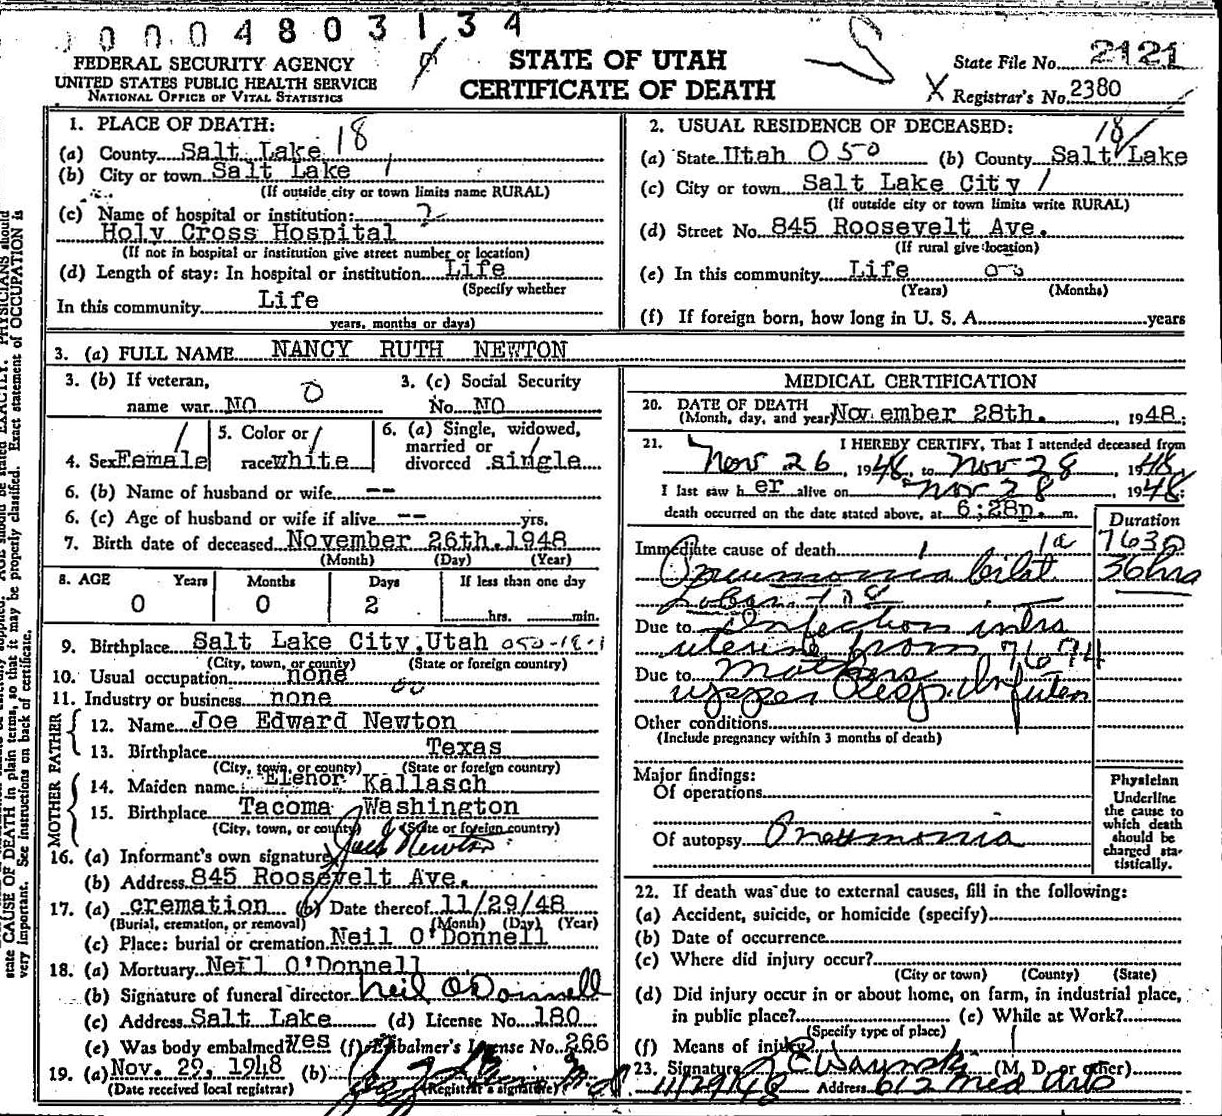 0004803134
FEDERAL SECURITY AGENCY
UNITED STATES PUBLIC HEALTH SERVICE
NATIONAL OFFICE OF VITAL STATISTICS
STATE OF UTAH
CERTIFICATE OF DEATH
State File No. 2121
X Registrar's No. 2380
1. PLACE OF DEATH: 18
(a) County Salt Lake
(b) City or town Salt Lake 1
(If outside city or town limits name RURAL)
(c) Name of hospital or institution: 2
Holy Cross Hospital
(If not in hospital or institution give street number or location)
(d) Length of stay: In hospital or institution Life
(Specify whether
In this community Life
years, months or days)
2. USUAL RESIDENCE OF DECEASED: 18
(a) State Utah 050 (b) County Salt Lake
(c) City or town Salt Lake City 1
(If outside city or town limits write RURAL)
(d) Street No. 845 Roosevelt Ave.
(If rural give location)
(e) In this community Life
(Years) (Months)
(f) If foreign born, how long in U. S. A. years
3. (a) FULL NAME NANCY RUTH NEWTON
3. (b) If veteran, 0
name war NO
3. (c) Social Security
No. NO
4. Sex Female
5. Color or
race white
6. (a) Single, widowed,
married or
divorced single
6. (b) Name of husband or wife --
6. (c) Age of husband or wife if alive -- yrs.
7. Birth date of deceased November 26th. 1948
(Month) (Day) (Year)
8. AGE Years Months Days If less than one day
0 0 2 hrs. min.
9. Birthplace Salt Lake City, Utah 050-18-1
(City, town, or county) (State or foreign country)
10. Usual occupation none
11. Industry or business none
FATHER
12. Name Joe Edward Newton
13. Birthplace Texas
(City, town, or county) (State or foreign country)
MOTHER
14. Maiden name Elenor Kallasch
15. Birthplace Tacoma Washington
(City, town, or county) (State or foreign country)
16. (a) Informant's own signature Newton
(b) Address 845 Roosevelt Ave.
17. (a) cremation (b) Date thereof 11/29/48
(Burial, cremation, or removal) (Month) (Day) (Year)
(c) Place: burial or cremation Neil O'Donnell
18. (a) Mortuary Neil O'Donnell
(b) Signature of funeral director Neil O'Donnell
(c) Address Salt Lake (d) License No. 180
(e) Was body embalmed? yes (f) Embalmer's License No. 266
19. (a) Nov. 29, 1948 (b)
(Date received local registrar) (Registrar's signature)
MEDICAL CERTIFICATION
20. DATE OF DEATH
(Month, day, and year) November 28th. 1948:
21. I HEREBY CERTIFY, That I attended deceased from
Nov 26, 1948, to Nov 28, 1948
I last saw her alive on Nov 28, 1948:
death occurred on the date stated above, at 6:28p. m.
Duration
Immediate cause of death 7630
Pneumonia bilat 36 hrs
Lobar
Due to Infection intra
uterine from 7674
Due to Mothers
upper Resp. Infection
Other conditions
(Include pregnancy within 3 months of death)
Major findings:
Of operations
Of autopsy Pneumonia
Physician
Underline
the cause to
which death
should be
charged sta-
tistically.
22. If death was due to external causes, fill in the following:
(a) Accident, suicide, or homicide (specify)
(b) Date of occurrence
(c) Where did injury occur?
(City or town) (County) (State)
(d) Did injury occur in or about home, on farm, in industrial place,
in public place? (e) While at Work?
(Specify type of place)
(f) Means of injury
23. Signature (M. D. or other)
11/29/48 Address 612 Med Arts
state CAUSE OF DEATH in plain terms, so that it may be properly classified. Exact statement of OCCUPATION is
very important. See instructions on back of certificate.